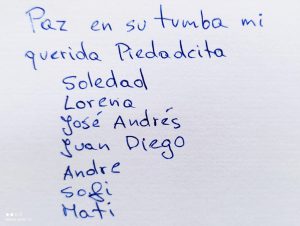 Paz en su tumba mi
querida Piedadcita
Soledad
Lorena
José Andrés
Juan Diego
Andre
Sofi
Mati